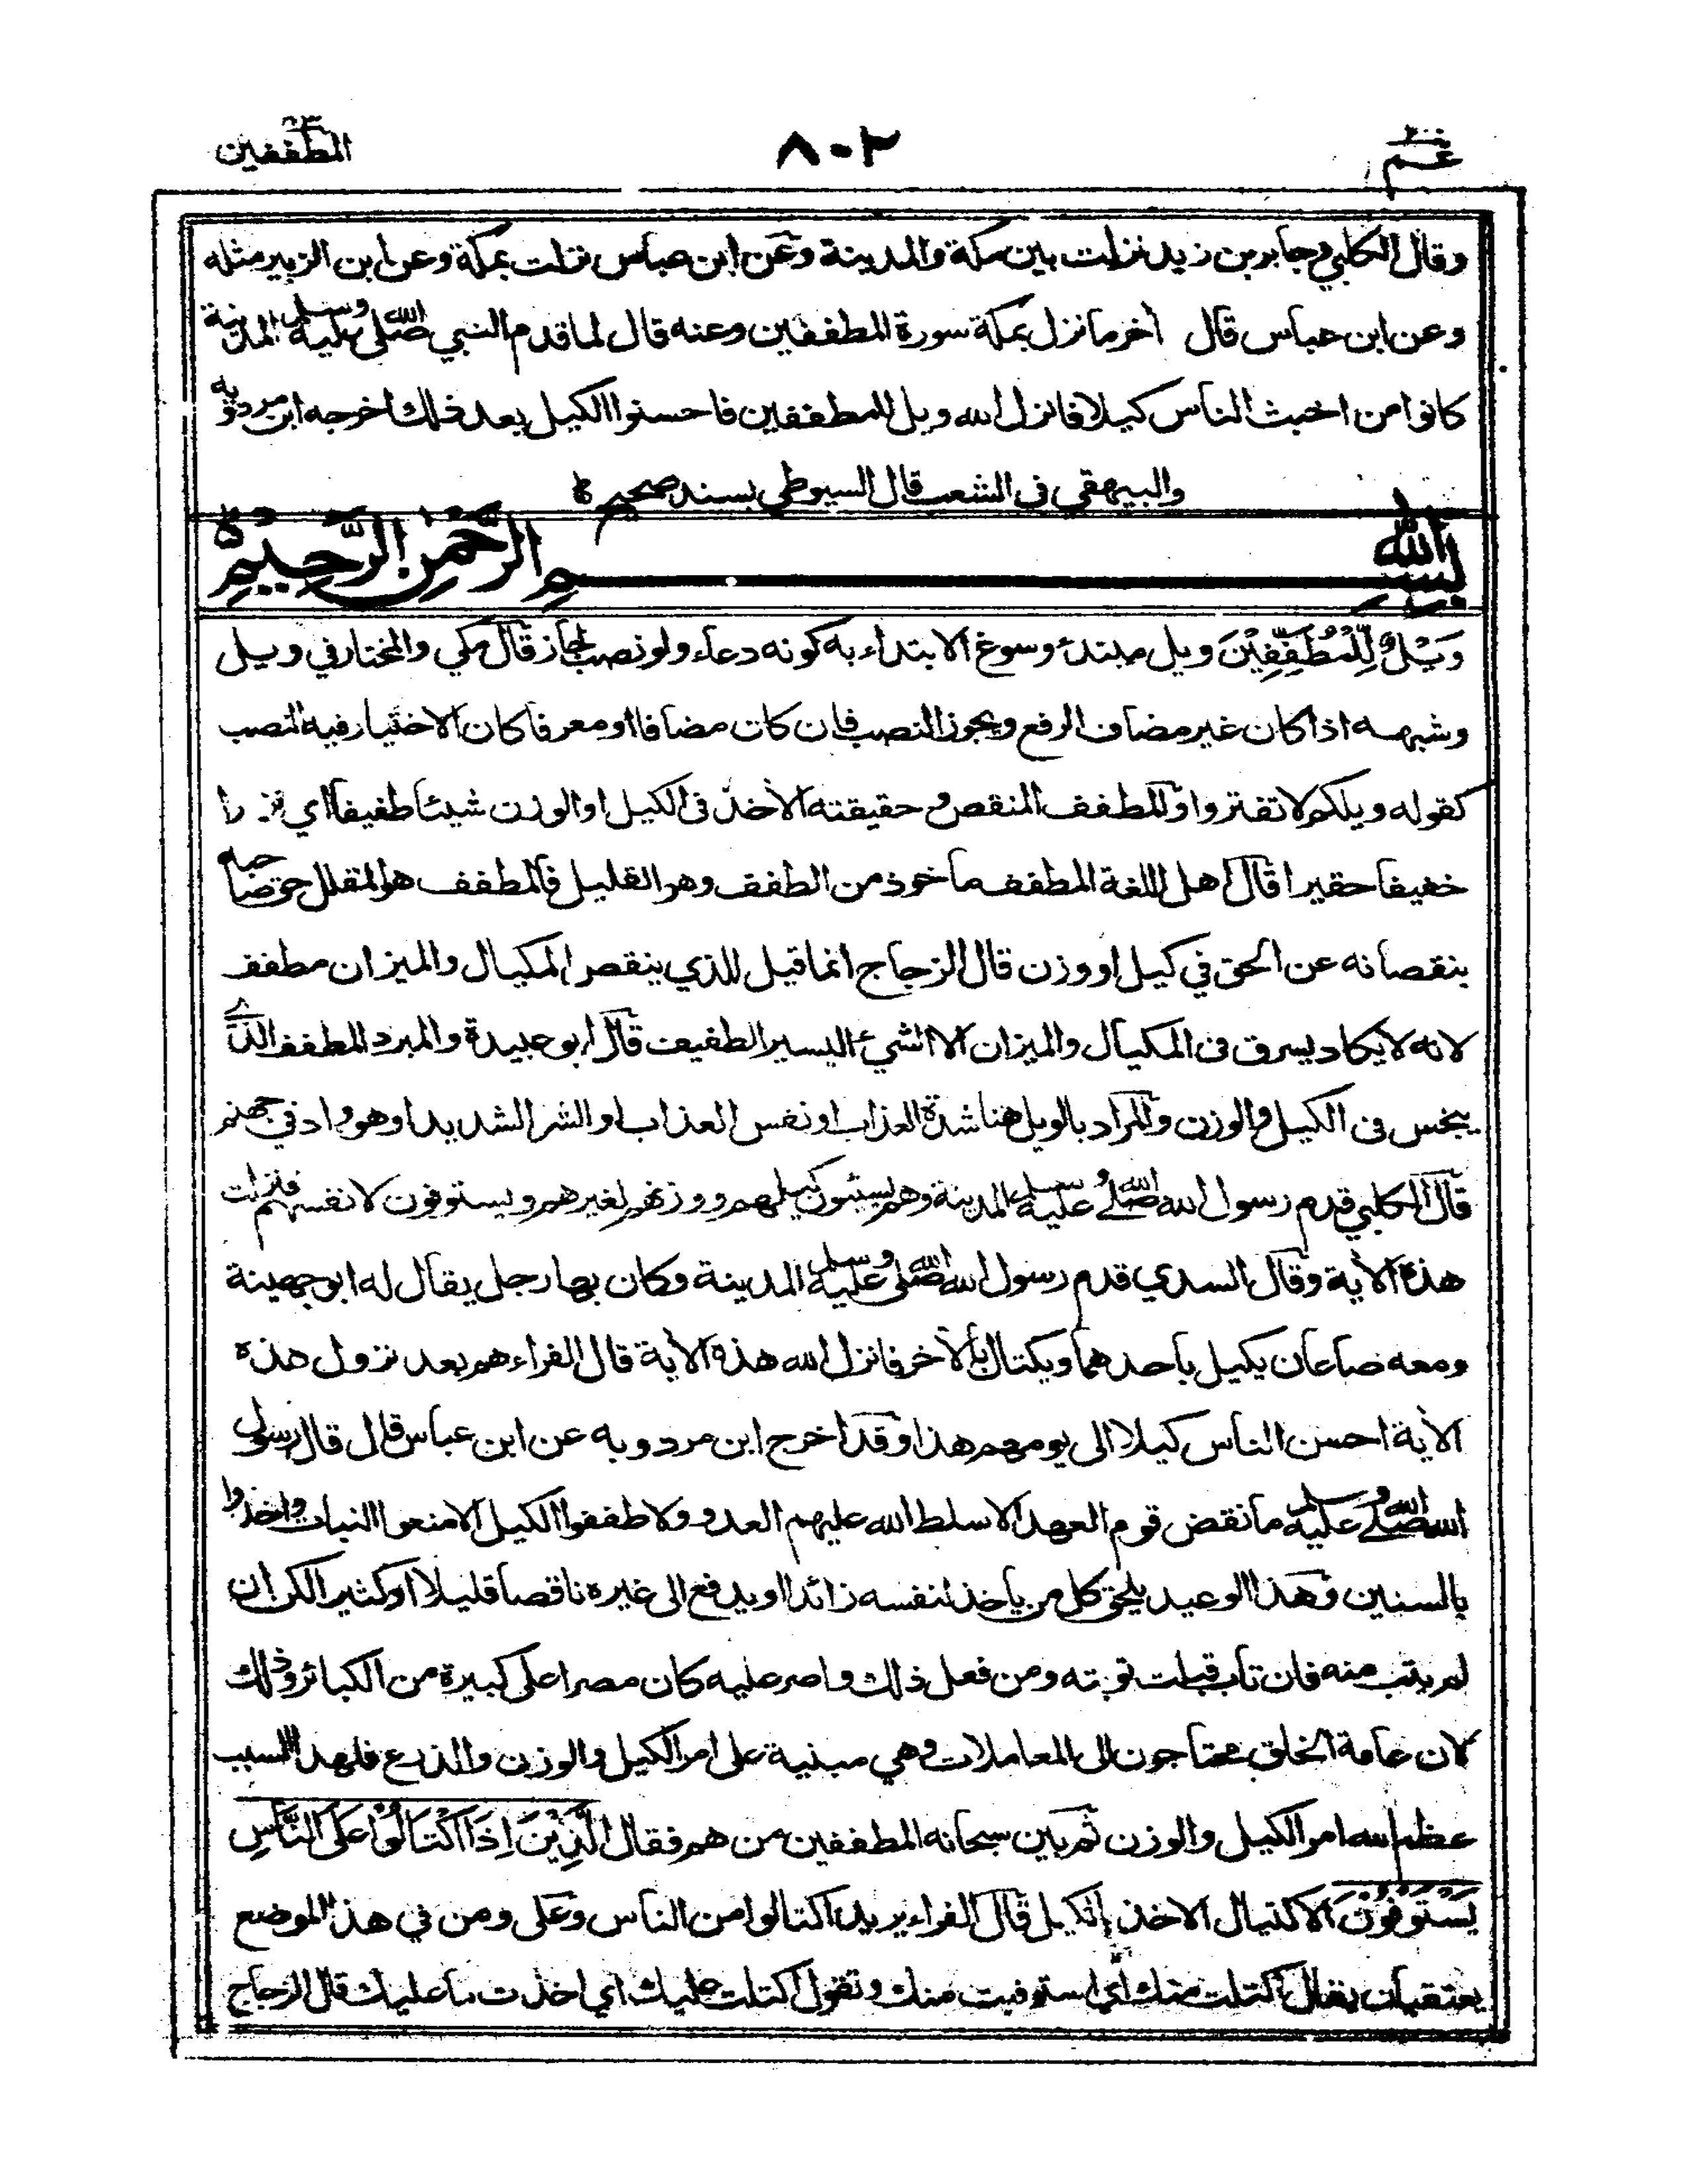 عم ٣٠
٨٠٢
المطففين ٨٣
وقال الكلبي وجابر بن زيد نزلت بين مكة والمدينة وعن ابن عباس نزلت بمكة وعن ابن الزبير مثله
وعن ابن عباس قال اخر ما نزل بمكة سورة المطففين وعنه قال لما قدم النبي صلى الله عليه وسلم المدينة
كانوا من اخبث الناس كيلا فانزل الله ويل للمطففين فاحسنوا الكيل بعد ذلك اخرجه ابن مردويه
والبيهقي في الشعب قال السيوطي بسند صحيح
بسم الله الرحمن الرحيم
وَيْلٌ لِّلْمُطَفِّفِيْنَ ويل مبتدء وسوغ الابتداء به كونه دعاء ولو نصب لجاز قال مكي والمختار في ويل
وشبهه اذا كان غير مضاف الرفع ويجوز النصب فان كان مضافا او معرفا كان الاختيار فيه النصب
كقوله ويلكم لا تفتروا والمطفف المنقص وحقيقته الاخذ في الكيل او الوزن شيئا طفيفا اي نزرا
خفيفا حقيرا قال اهل اللغة المطفف ماخوذ من الطفف وهو القليل فالمطفف هو المقلل حق صاحبه
بنقصانه عن الحق في كيل او وزن قال الزجاج انما قيل للذي ينقص المكيال والميزان مطفف
لانه لا يكاد يسرق في المكيال والميزان الا الشيء اليسير الطفيف قال ابو عبيدة والمبرد المطفف الذي
يبخس في الكيل والوزن والمراد بالويل هنا شدة العذاب او نفس العذاب او الشر الشديد او هو واد في جهنم
قال الكلبي قدم رسول الله صلى الله عليه وسلم المدينة وهم يسيئون كيلهم ووزنهم لغيرهم ويستوفون لانفسهم فنزلت
هذه الاٰية وقال السدي قدم رسول الله صلى الله عليه وسلم المدينة وكان بها رجل يقال له ابو جهينة
ومعه صاعان يكيل باحدهما ويكتال بالاٰخر فانزل الله هذه الاٰية قال الفراء هم بعد نزول هذه
الاٰية احسن الناس كيلا الى يومهم هذا وقد اخرج ابن مردويه عن ابن عباس قال قال رسول
الله صلى الله عليه وسلم ما نقض قوم العهد الا سلط الله عليهم العدو ولا طففوا الكيل الا منعوا النبات واخذوا
بالسنين وهذا الوعيد يلحق كل من ياخذ لنفسه زائدا او يدفع الى غيره ناقصا قليلا او كثيرا لكن ان
لم يتب منه فان تاب قبلت توبته ومن فعل ذلك واصر عليه كان مصرا على كبيرة من الكبائر وذلك
لان عامة الخلق محتاجون الى المعاملات وهي مبنية على امر الكيل والوزن والذرع فلهذا السبب
عظم الله امر الكيل والوزن ثم بين سبحانه المطففين من هم فقال الَّذِيْنَ اِذَا اكْتَالُوْا عَلَى النَّاسِ
يَسْتَوْفُوْنَ الاكتيال الاخذ بالكيل قال الفراء يريد اكتالوا من الناس وعلى ومن في هذا الموضع
يعتقبان يقال اكتلت منك اي استوفيت منك وتقول اكتلت عليك اي اخذت ما عليك قال الزجاج